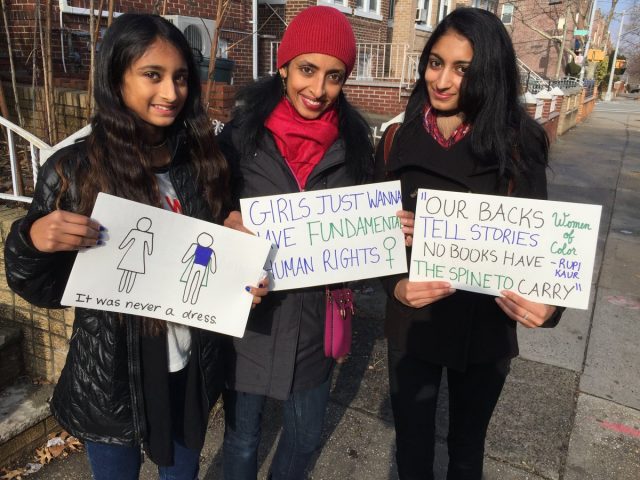 It was never a dress.
GIRLS JUST WANNA
HAVE FUNDAMENTAL
HUMAN RIGHTS
"OUR BACKS
TELL STORIES
NO BOOKS HAVE
THE SPINE TO CARRY"
Women
of
Color
- RUPI
KAUR